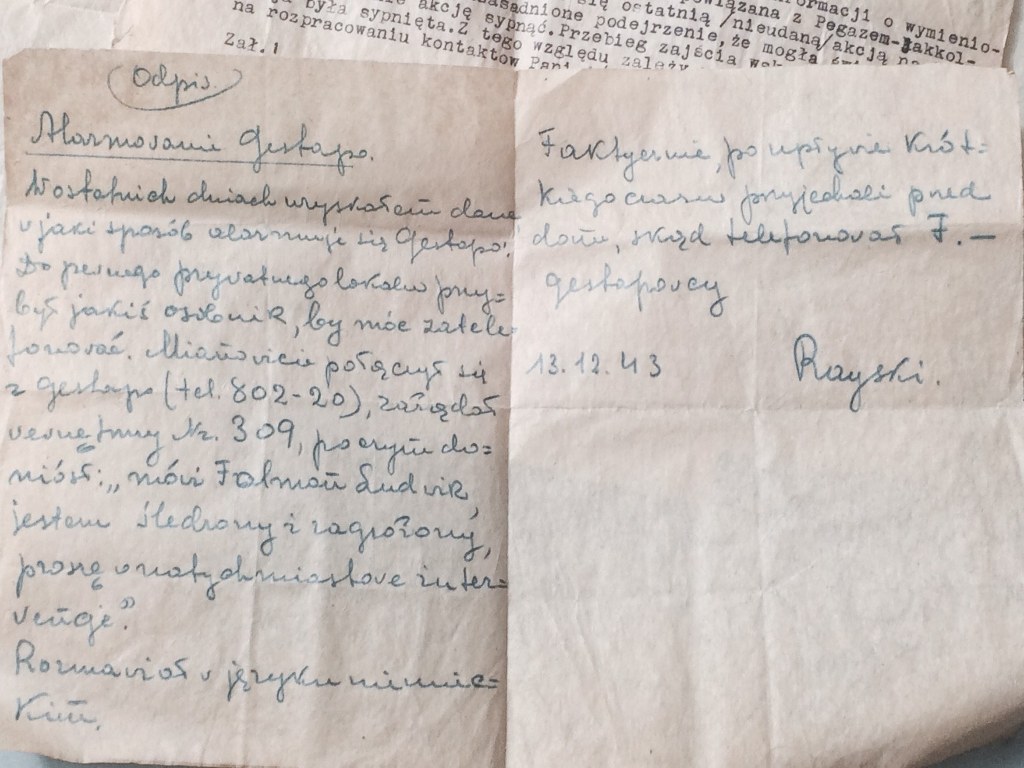 formacji o wymienio-
powiązana z Pegazem-Jakkol-
się ostatnią /nieudaną/akcją na
zasadnione podejrzenie, że mogła
akcję sypnąć.Przebieg zajścia
była sypnięta.Z tego względu zależy
na rozpracowaniu kontaktów Pani
Zał.1
Odpis.
Alarmowanie Gestapo.
W ostatnich dniach uzyskałem dane
w jaki sposób alarmuje się Gestapo:
Do pewnego prywatnego lokalu przy=
był jakiś osobnik, by móc zatele=
fonować. Mianowicie połączył się
z gestapo (tel. 802-20), zażądał
wewnętrzny Nr. 309, poczym do=
niósł: „mówi Folman Ludwik,
jestem śledzony i zagrożony,
proszę o natychmiastowe inter=
wencje".
Rozmawiał w języku niemiec=
kim.
Faktycznie, po upływie krót=
kiego czasu przyjechali przed
dom, skąd telefonował F.—
gestapowcy
13.12.43 Rayski.